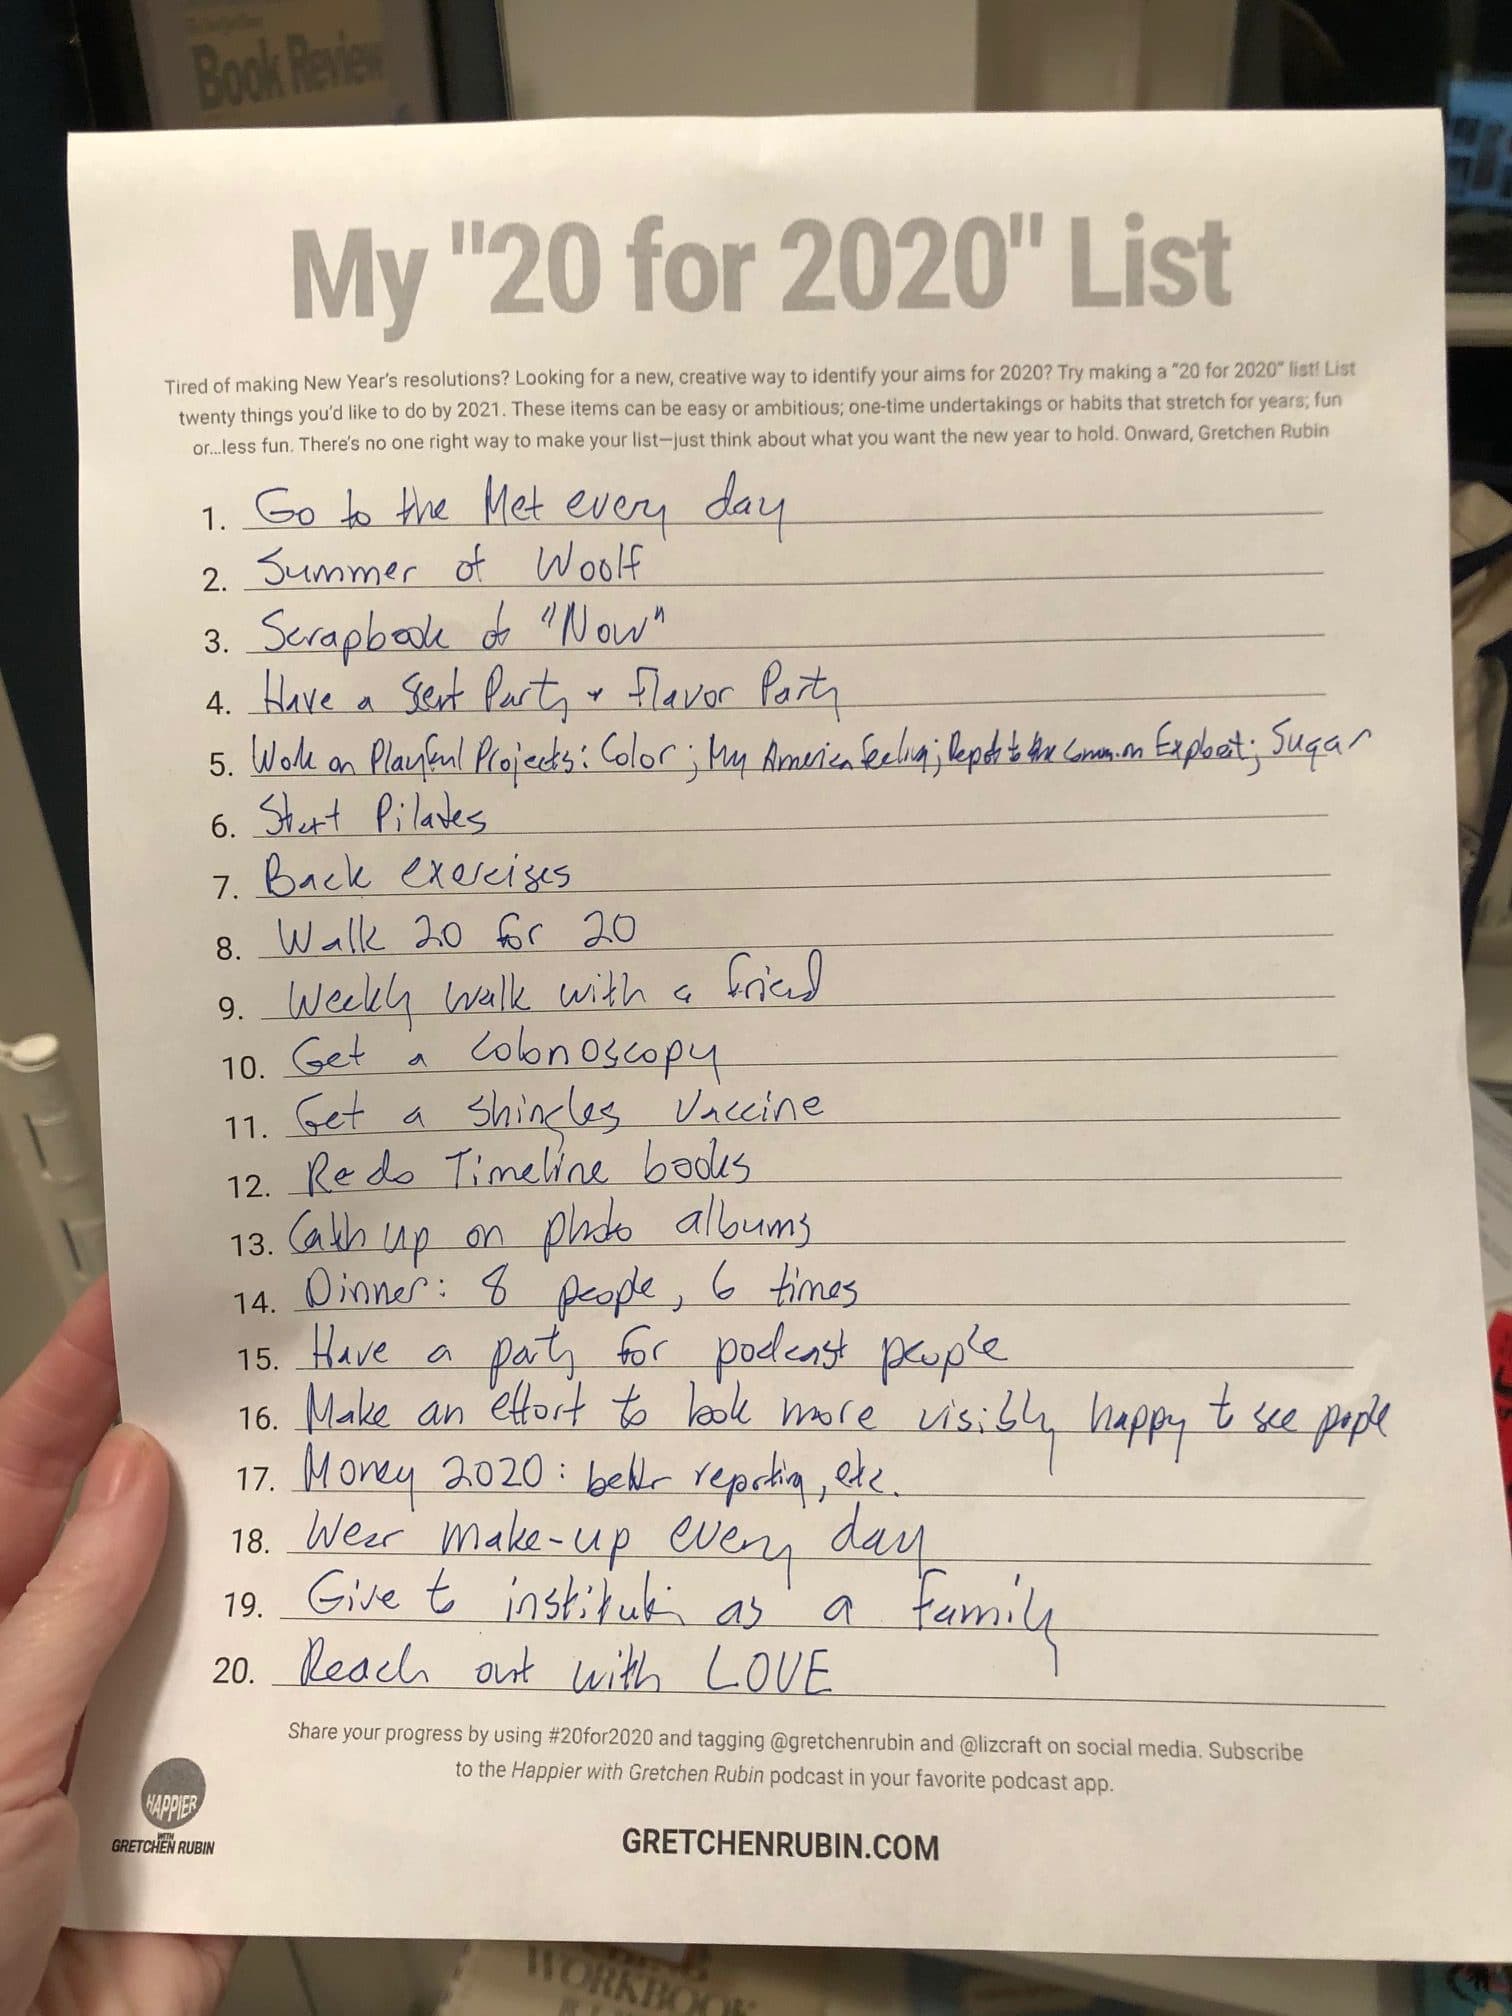 Book Review
My "20 for 2020" List
Tired of making New Year's resolutions? Looking for a new, creative way to identify your aims for 2020? Try making a "20 for 2020" list! List
twenty things you'd like to do by 2021. These items can be easy or ambitious; one-time undertakings or habits that stretch for years; fun
or...less fun. There's no one right way to make your list—just think about what you want the new year to hold. Onward, Gretchen Rubin
1. Go to the Met every day
2. Summer of Woolf
3. Scrapbook of "Now"
4. Have a Scent Party + Flavor Party
5. Work on Playful Projects: Color; My America Feeling; to the Common Sugar
6. Start Pilates
7. Back exercises
8. Walk 20 for 20
9. Weekly walk with a friend
10. Get a colonoscopy
11. Get a shingles vaccine
12. Redo Timeline books
13. Catch up on photo albums
14. Dinner: 8 people, 6 times
15. Have a party for podcast people
16. Make an effort to look more visibly happy to see people
17. Money 2020: better reporting, etc.
18. Wear make-up every day
19. Give to institution as a family
20. Reach out with LOVE
Share your progress by using #20for2020 and tagging @gretchenrubin and @lizcraft on social media. Subscribe
to the Happier with Gretchen Rubin podcast in your favorite podcast app.
HAPPIER
WITH
GRETCHEN RUBIN
GRETCHENRUBIN.COM
WORKBOOK